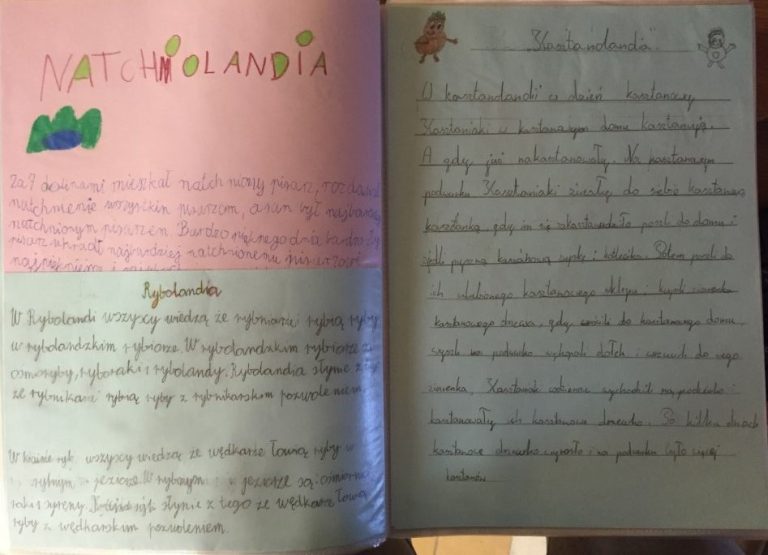 NATCHNIOLANDIA
Za 7 dolinami mieszkał natchniony pisarz, rozdawał
natchnienie wszystkim pisarzom, a sam był najbardziej
natchnionym pisarzem. Bardzo pięknego dnia bardzo zły
pisarz ukradł najbardziej natchnionemu pisarzowi
Rybolandia
W Rybolandi wszyscy wiedzą że rybniarze rybią ryby
w rybolandzkim rybiorze. W rybolandzkim rybiorze są
osmioryby, ryboraki i rybolandy. Rybolandia słynie z
że rybnikarze rybią ryby z rybnikarskim pozwoleniem.
W krainie ryb wszyscy wiedzą że wędkarze łowią ryby w
rybnym jeziorze. W rybnym jeziorze są: ośmiornice
raki i syreny. słynie z tego że wędkarze łowią
ryby z wędkarskim pozwoleniem.
"Kasztanolandia"
W kasztanlandii w dzień kasztanowy
Kasztaniaki w kasztanowym domu kasztanują.
A gdy już nakasztanowały. Na kasztanowym
podwórku Kasztaniaki do siebie kasztanową
kasztankę, gdy im się zakasztanudało poszli do domu i
zjedli pyszną zupkę i kotlecika. Potem poszli do
ich ulubionego kasztanowego sklepu i kupili ziarenka
kasztanowego drzewa, gdy wrócili do kasztanowego domu,
wyszli na podwórko wykopali dołek i wrzucili do niego
ziarenka, Kasztaniak codziennie wychodził na podwórko i
kasztanowały ich kasztanowe drzewko. Po kilku dniach
kasztanowe drzewko wyrosło i na podwórku było więcej
kasztanów